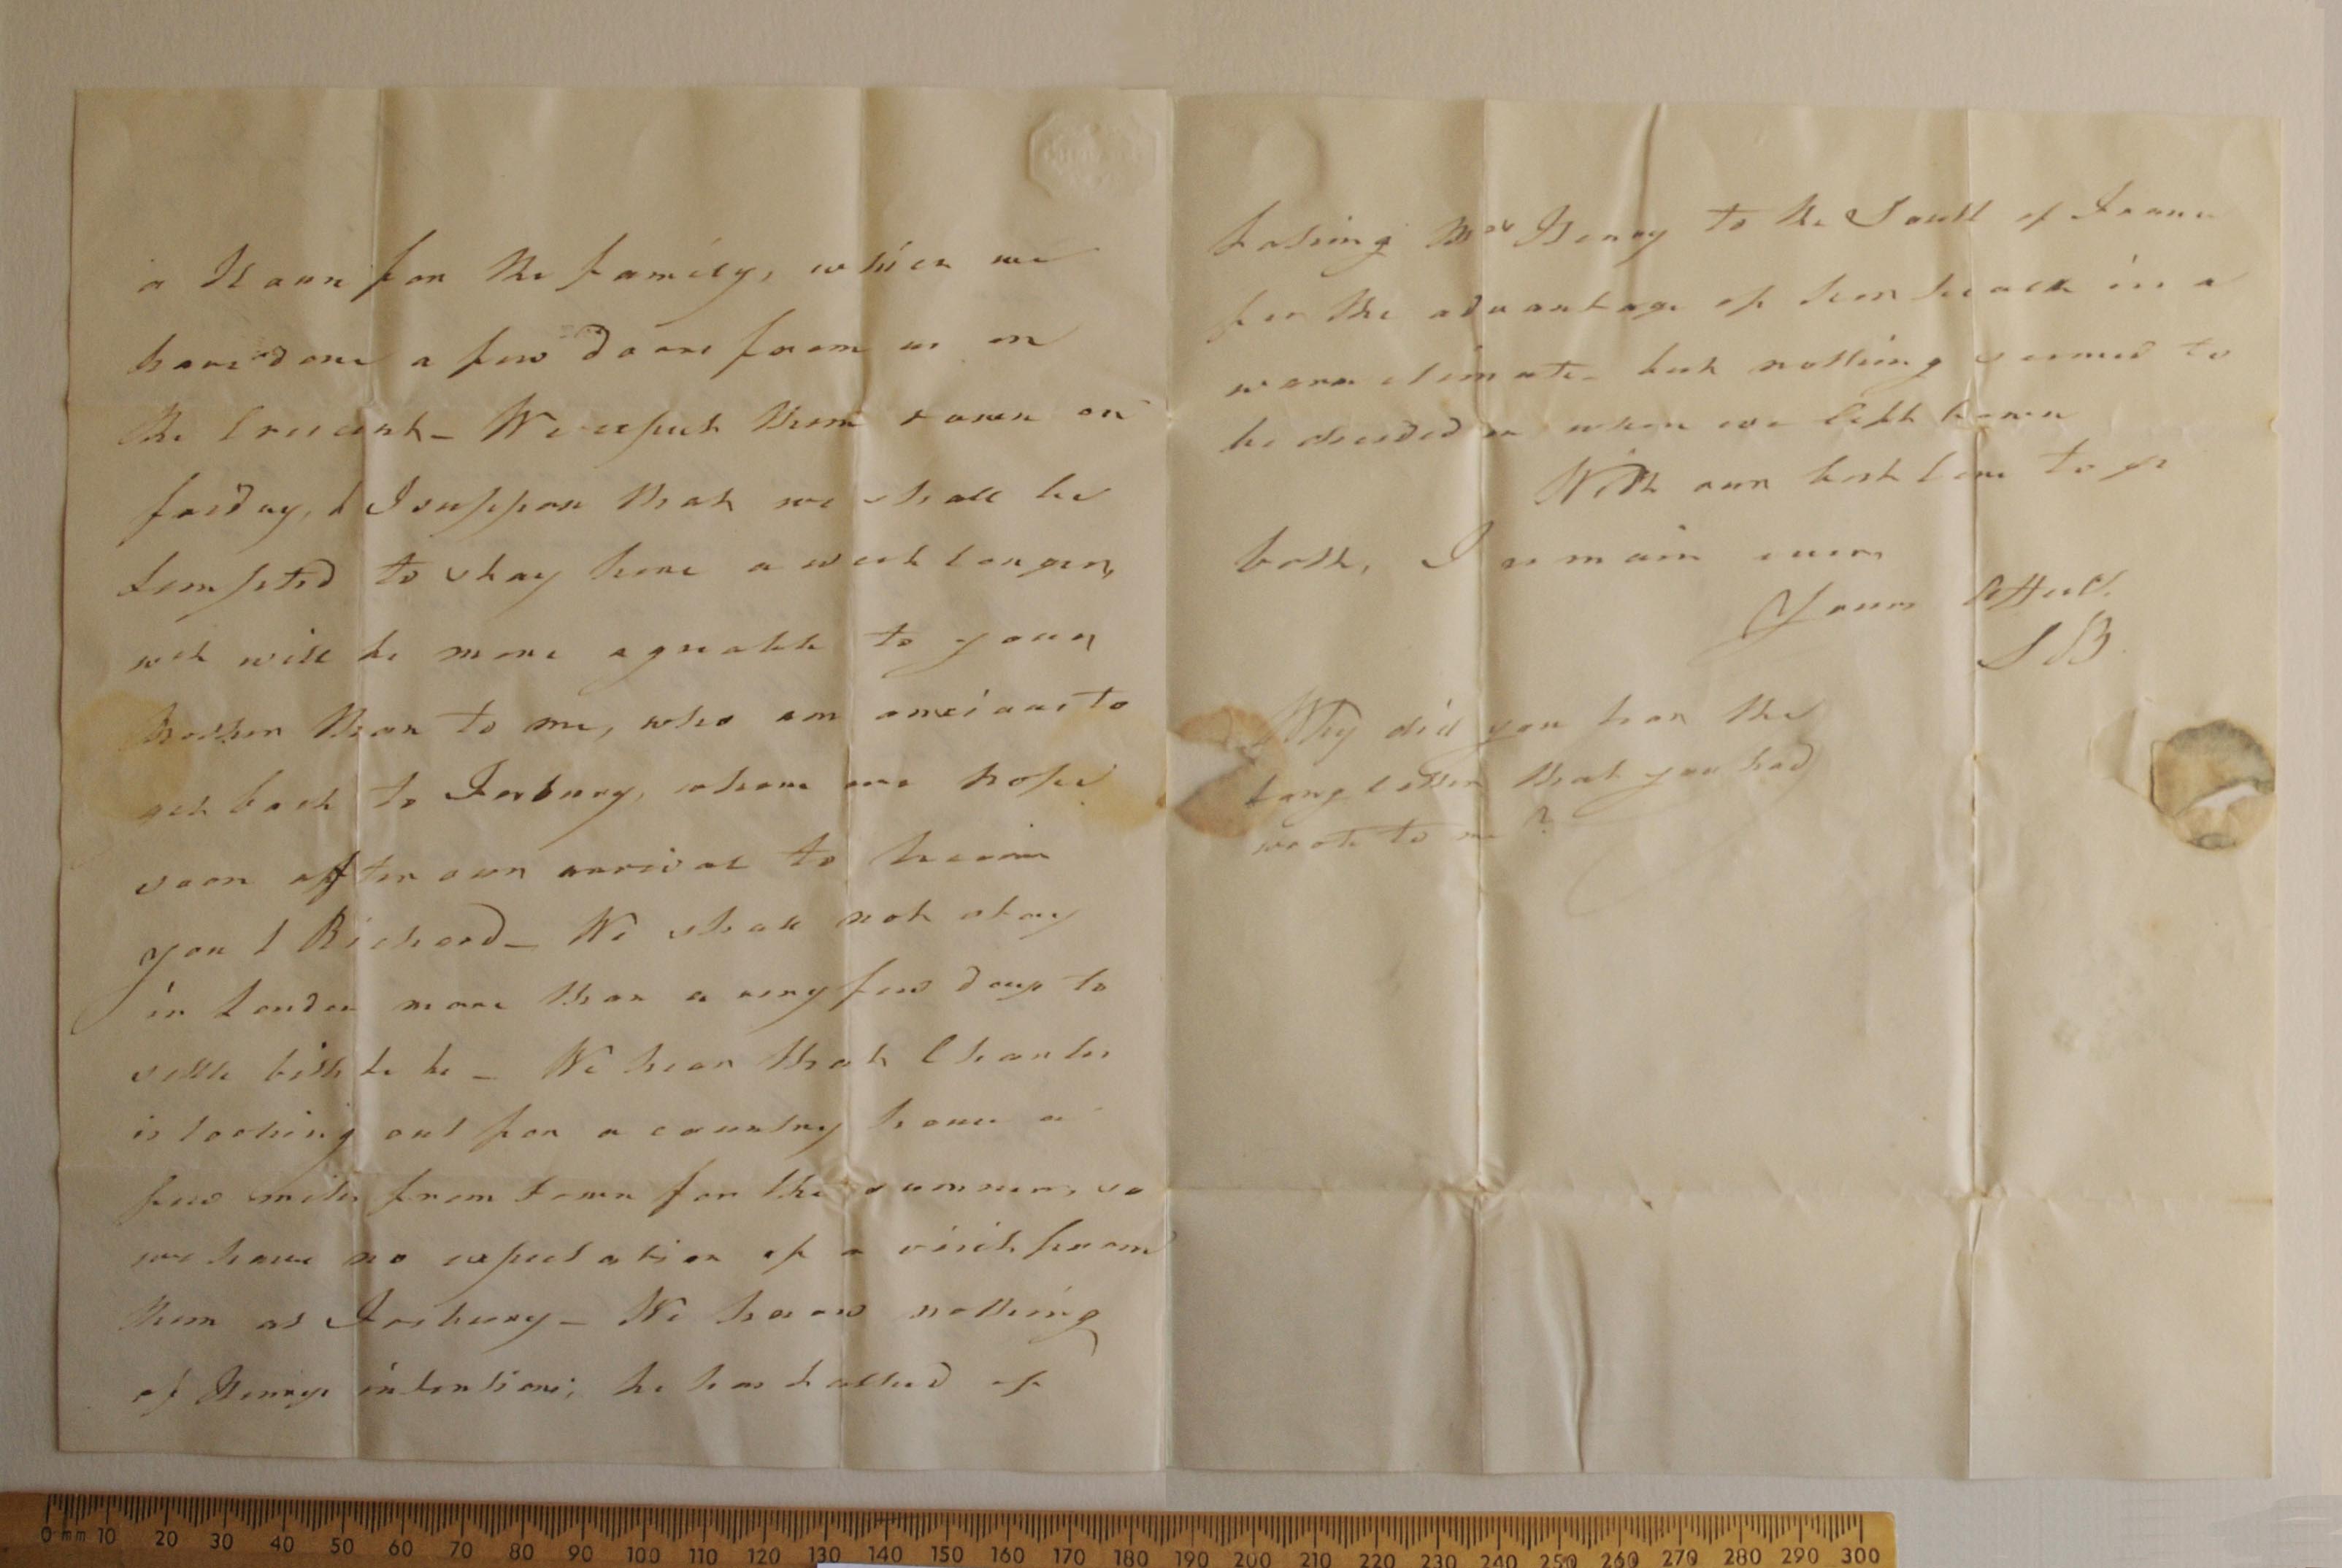 a House for the family, which we
have done a few doors from us in
the Crescent – We expect them down on
friday, & I suppose that we shall be
tempted to stay here a week longer,
wch will be more agreable to your
Mother than to me, who am anxious to
get back to Forbury, where we hope
soon after our arrival to
you & Richard – We shall not stay
in London more than a very few days to
settle bills &c &c – We hear that Charles
is looking out for a country house a
few miles from town for the summer, so
we have no expectation of a visit from
them at Forbury – We know nothing
of Henrys intentions; he has talked of
taking Mrs Henry to the South of France
for the advantage of her health in a
warm climate – but nothing seemed to
be decided on when we left home
With our best love to yo
both, I remain ever,
Yours Affect.
SB
Why did you tear the
long letter that you had
wrote to me?
0 mm 10 20 30 40 50 60 70 80 90 100 110 120 130 140 150 160 170 180 190 200 210 220 230 240 250 260 270 280 290 300